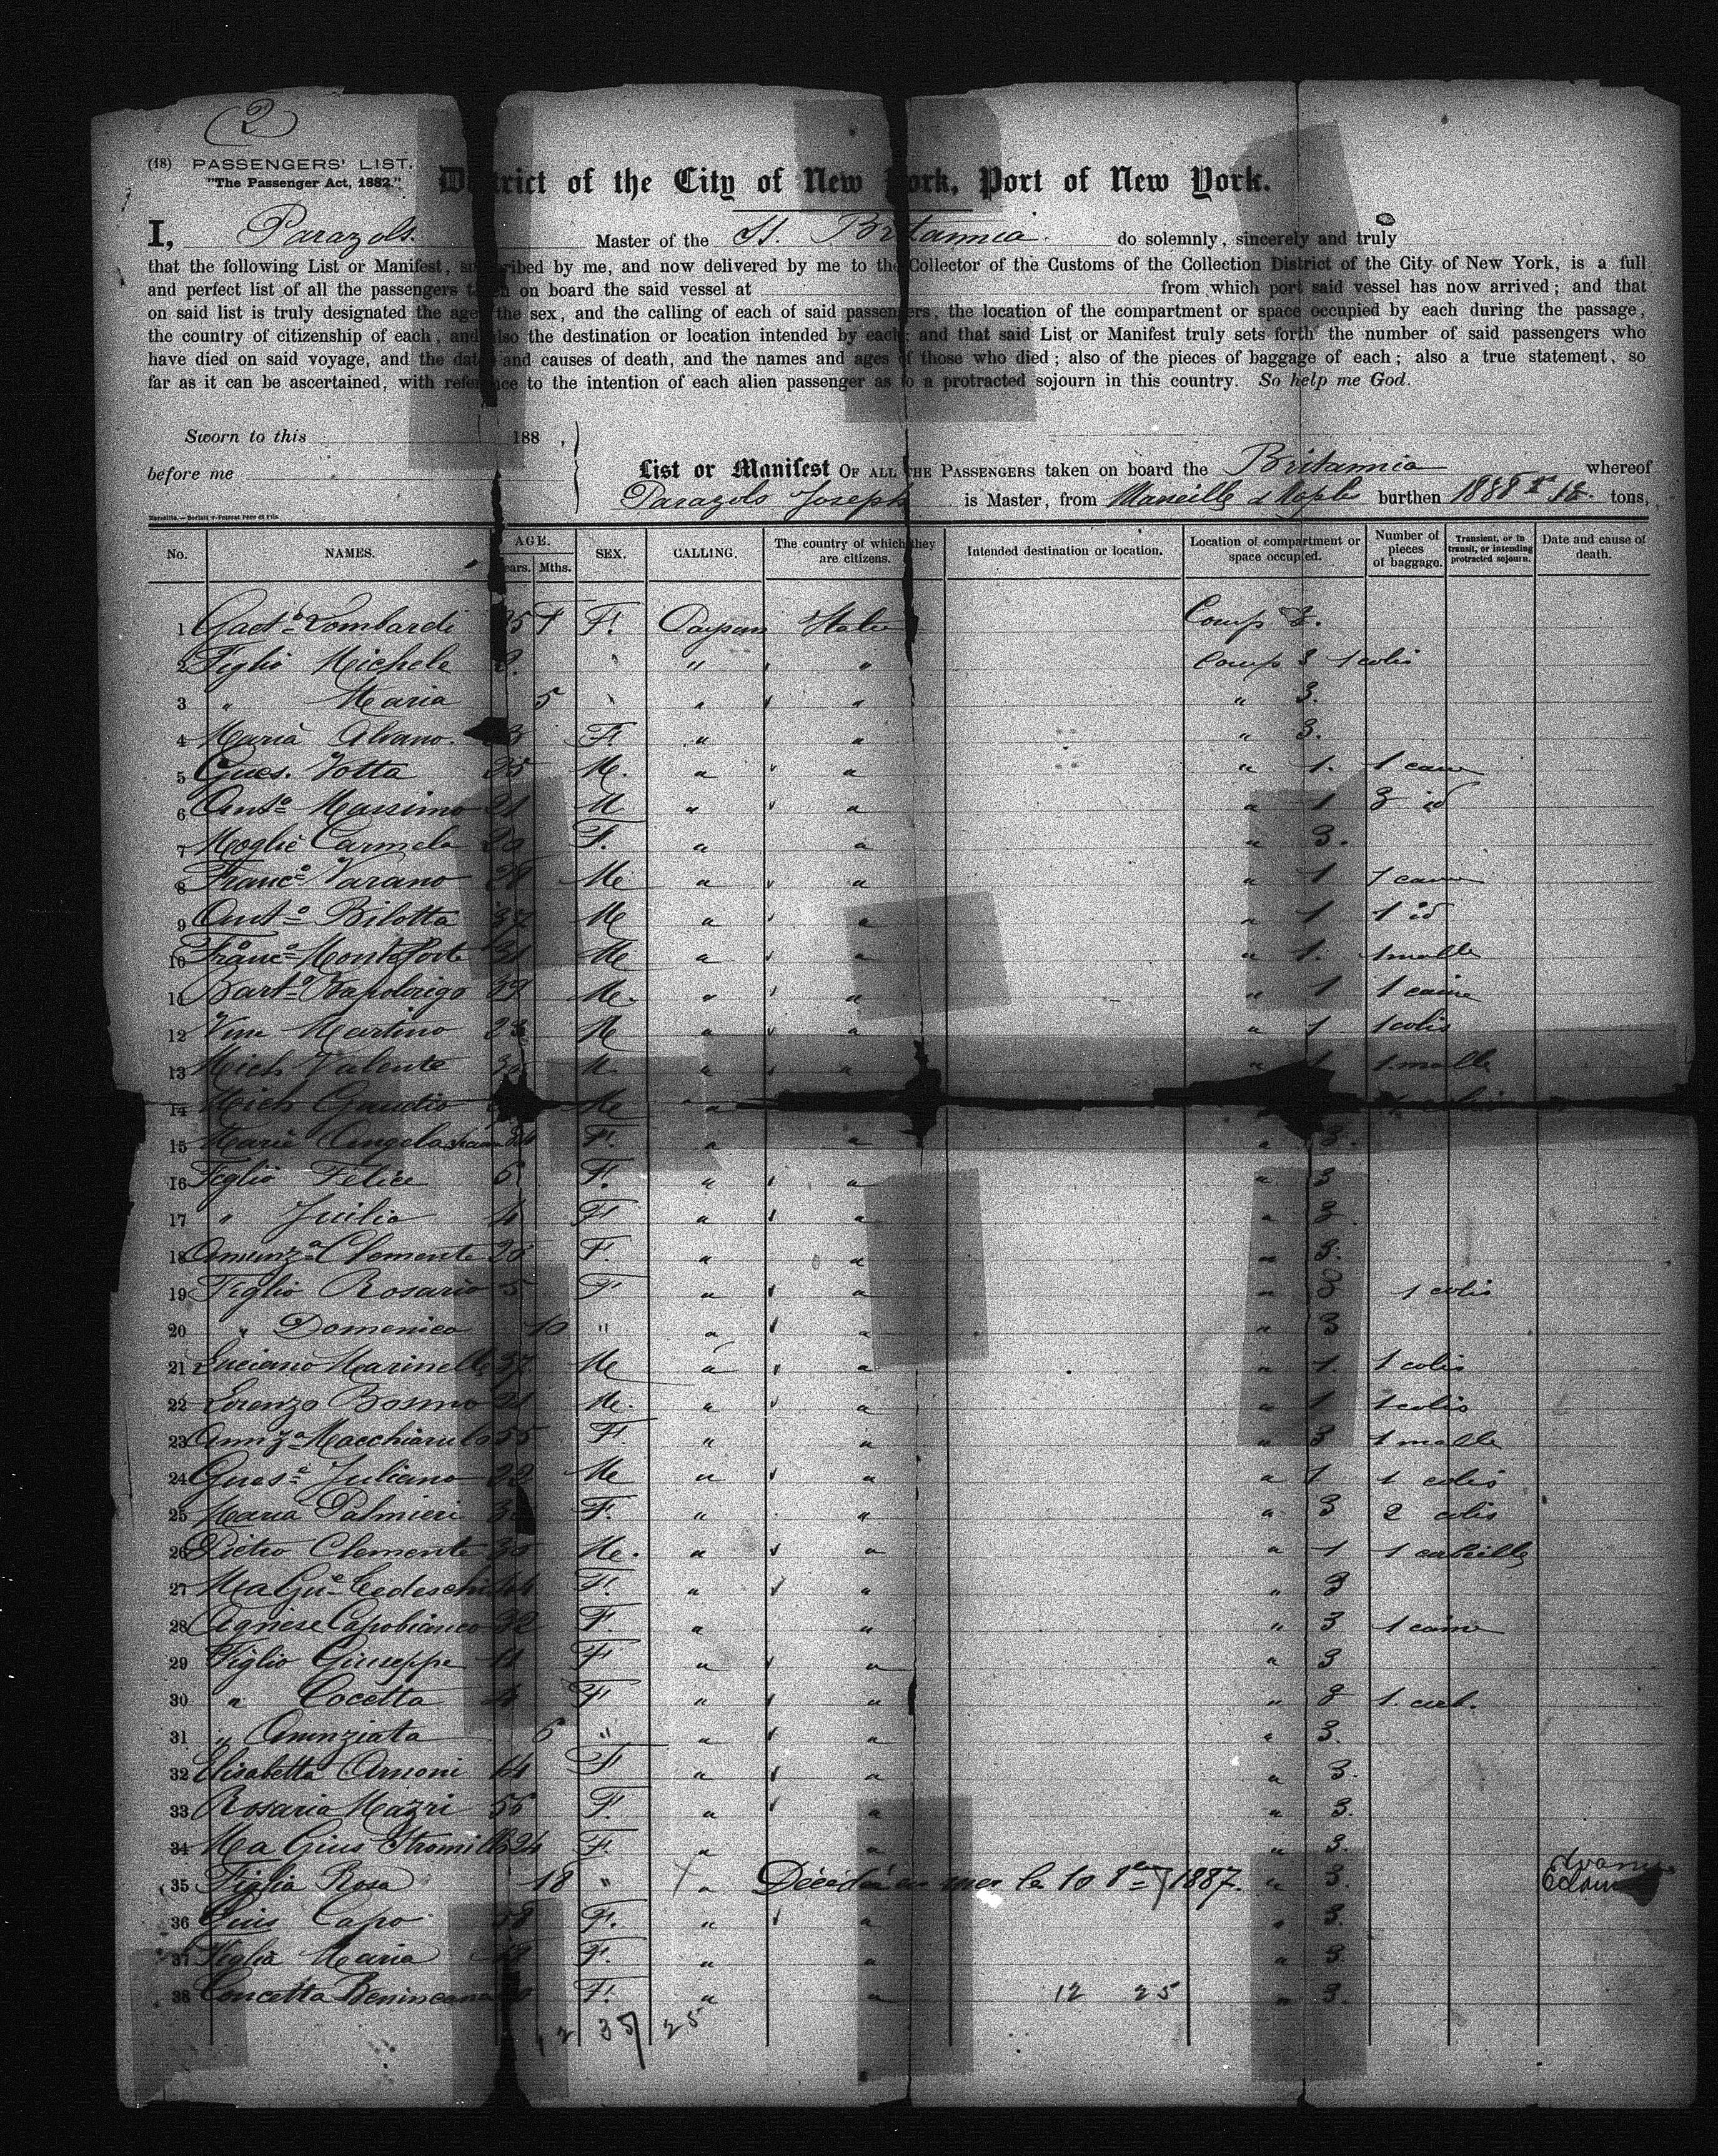 2
(18) PASSENGERS' LIST.
"The Passenger Act, 1882."
District of the City of New York, Port of New York.
I, Parazols Master of the St. Britannia do solemnly, sincerely and truly
that the following List or Manifest, subscribed by me, and now delivered by me to the Collector of the Customs of the Collection District of the City of New York, is a full
and perfect list of all the passengers taken on board the said vessel at from which port said vessel has now arrived; and that
on said list is truly designated the age, the sex, and the calling of each of said passengers, the location of the compartment or space occupied by each during the passage,
the country of citizenship of each, and also the destination or location intended by each; and that said List or Manifest truly sets forth the number of said passengers who
have died on said voyage, and the dates and causes of death, and the names and ages of those who died; also of the pieces of baggage of each; also a true statement, so
far as it can be ascertained, with reference to the intention of each alien passenger as to a protracted sojourn in this country. So help me God.
Sworn to this 188 ,
before me
List or Manifest OF ALL THE PASSENGERS taken on board the Britannia whereof
Parazols Joseph is Master, from Marseille & Naples burthen tons,
No. NAMES. AGE. Years. Mths. SEX. CALLING. The country of which they are citizens. Intended destination or location. Location of compartment or space occupied. Number of pieces of baggage. Transient, or in transit, or intending protracted sojourn. Date and cause of death.
1 Gaet° Lombardi 35 F. Paysan Italie Comp 3.
2 Figlio Michele " " Comp 3 1 colis
3 " Maria 5 " " " 3.
4 Maria Alvano. F. " " " 3.
5 Gues. Votta 35 M. " " " 1. 1 caisse
6 Ant° Massimo 21 M " " " 1 3 id
7 Moglie Carmela 20 F. " " " 3.
8 Franc° Varano 28 M. " " " 1 1 caisse
9 Ant° Bilotta 37 M " " " 1 1 id
10 Franc° Monteforte 31 M " " " 1. 1 malle
11 Bart° M. " " " 1 1 caisse
12 Vin Martino M " " " 1 1 colis
13 Mich Valente M. " " " 1 1 malle
14 Mich Gaudio M "
15 Marie Angela F. " " " 3.
16 Figlio Felice 6 F. " " " 3
17 " Juilio 4 F. " " " 3.
18 Anunz° Clemente F. " " " 3.
19 Figlio Rosario 5 F " " " 3 1 colis
20 " Domenico 10 " " " " 3
21 Luciano Marinelli 37 M " " " 1. 1 colis
22 Lorenzo Bosmo 21 M. " " " 1 1 colis
23 Annza Macchiarulo 55 F. " " " 3 1 malle
24 Gues° Juliano 22 M " " " 1 1 colis
25 Maria Palmieri F. " " " 3 2 colis
26 Pietro Clemente 35 M. " " " 1 1 corbeille
27 Ma Gue Tedeschi 44 F. " " " 3
28 Agnese Capobianco 32 F. " " " 3 1 caisse
29 Figlio Giuseppe 11 F " " " 3
30 " Cocetta 4 F " " " 3 1 corb.
31 " Anunziata 6 " " " " 3.
32 Elisabetta Arnoni F " " " 3.
33 Rosaria Mazri 55 F. " " " 3.
34 Ma Gius Stromilli 24 F. " " " 3.
35 Figlia Rosa 18 " " Décédée en mer le 10 8bre 1887. " 3.
36 Gius Capo 58 F. " " " 3.
37 Figlia Maria 18 F. " " " 3.
38 Concetta F. " " 12 25 " 3.
12 37 25